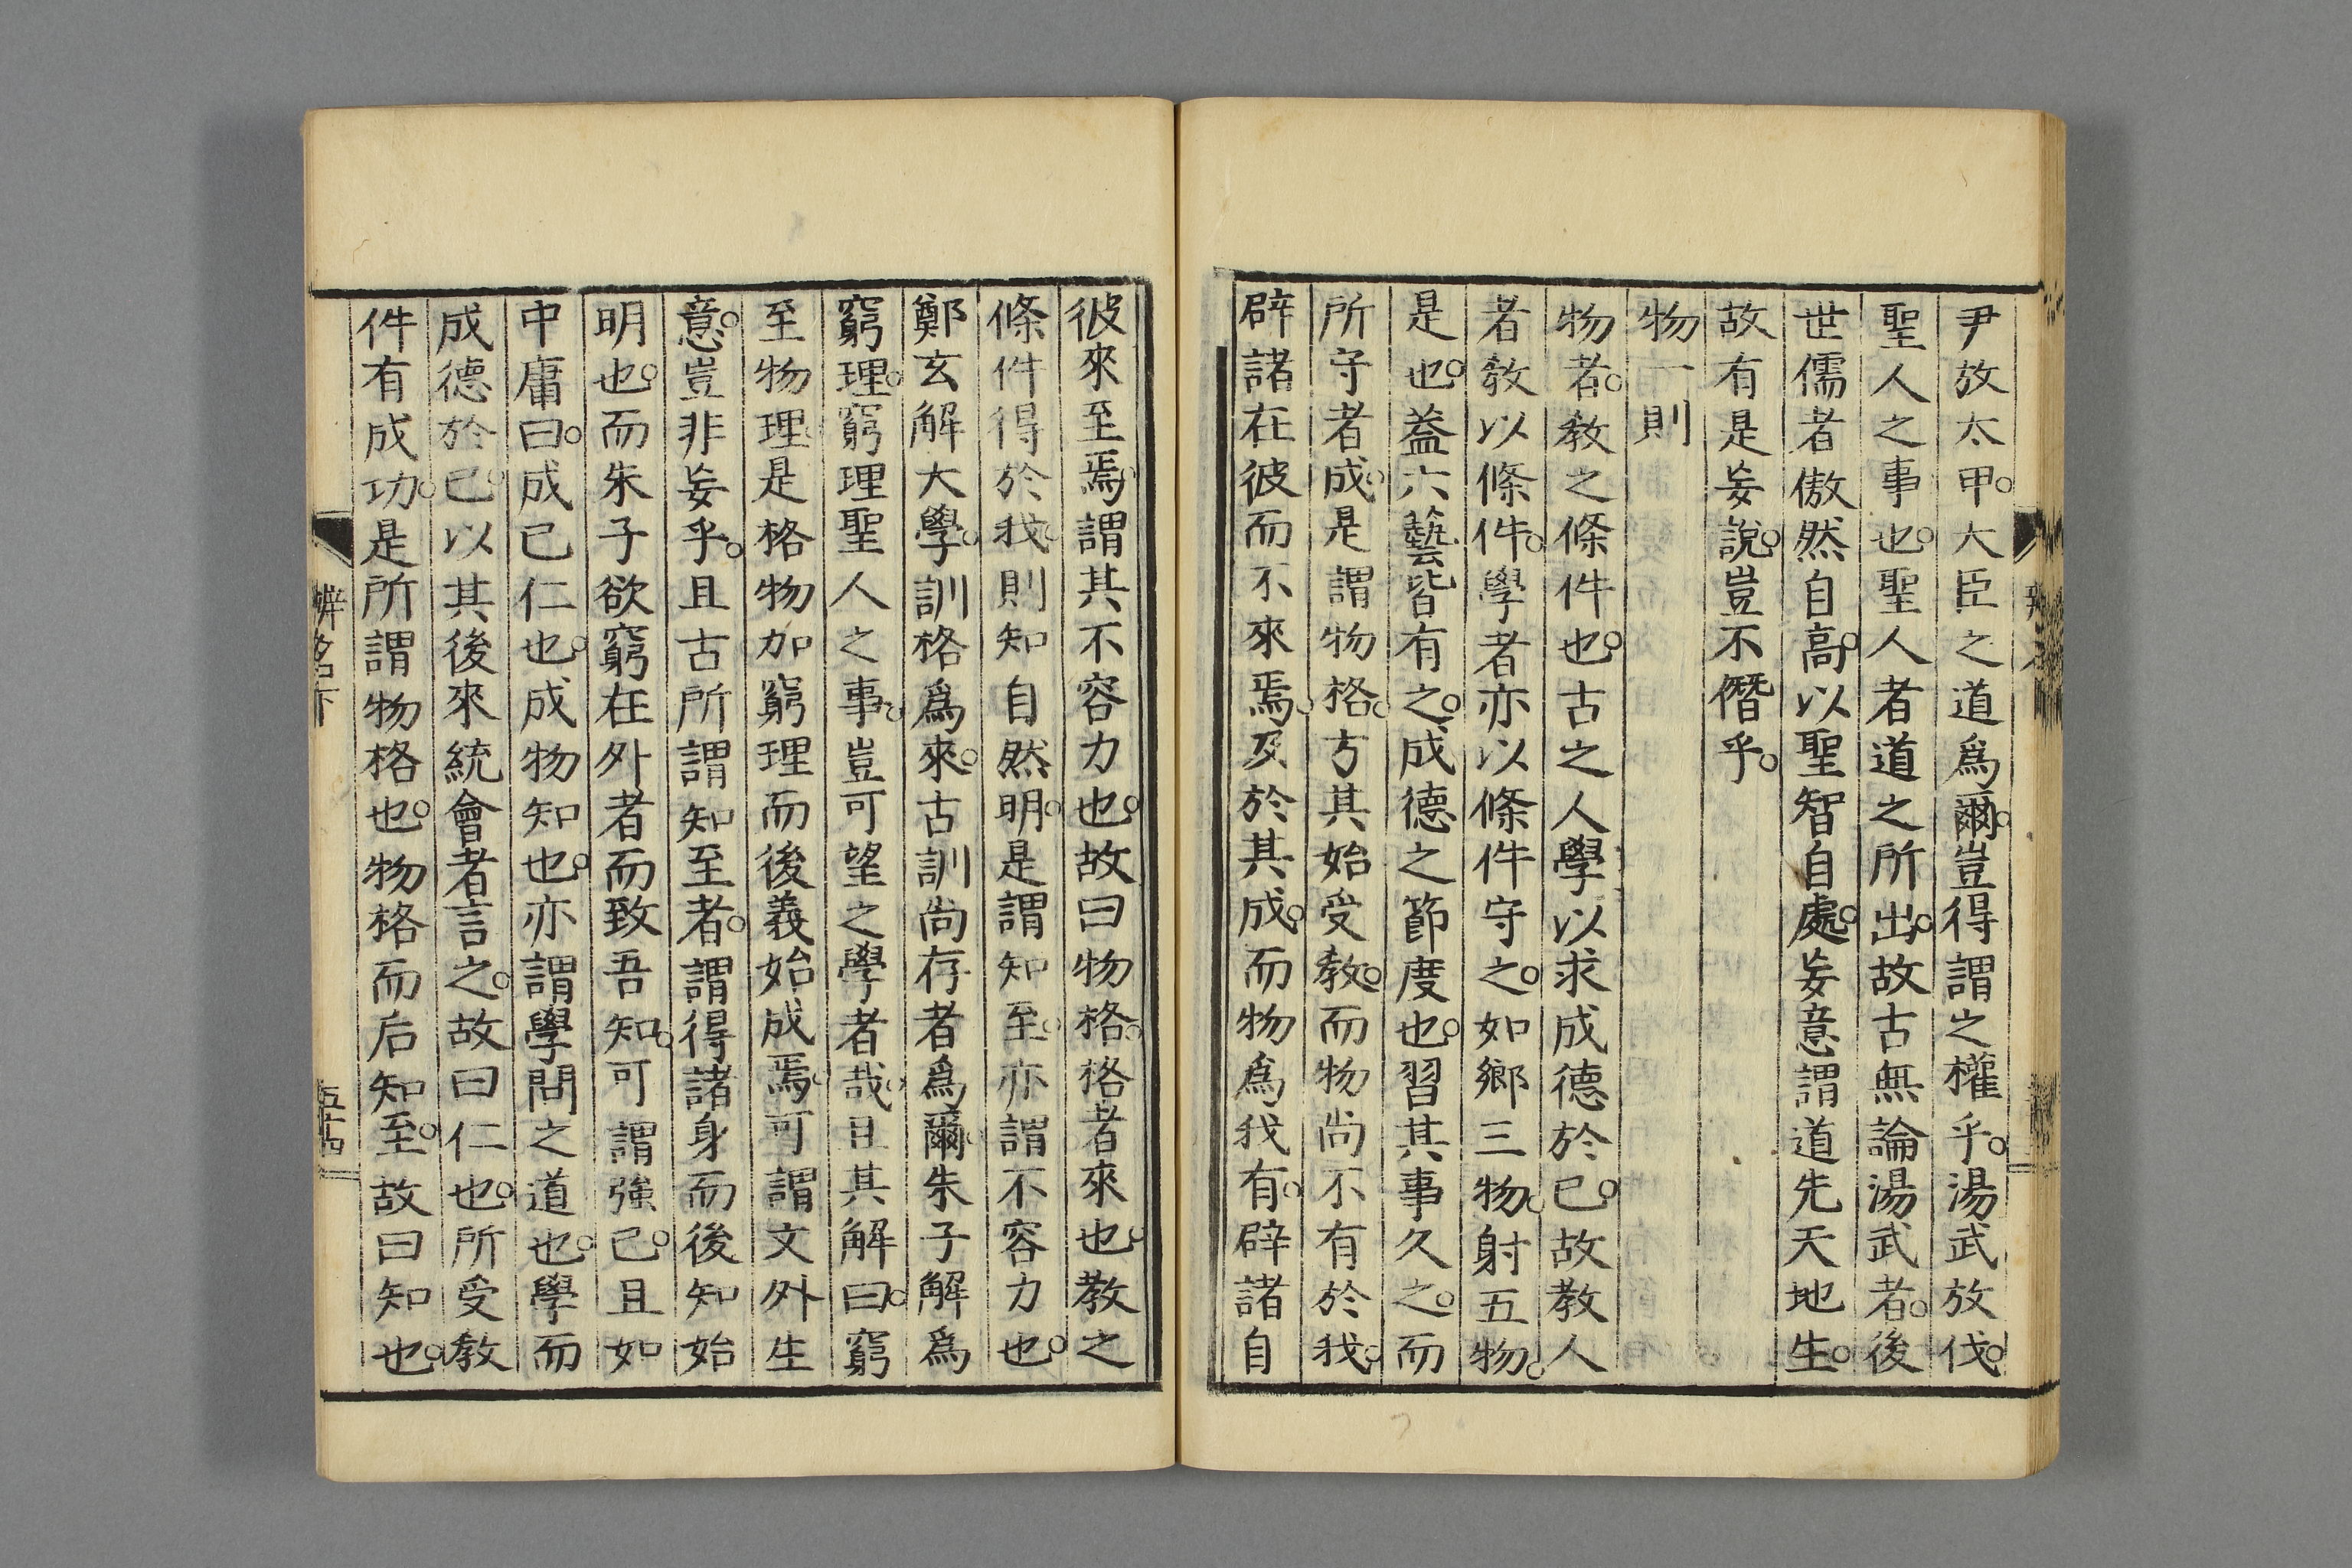 尹放太甲。大臣之道爲爾。豈得謂之權乎。湯武放伐。
聖人之事也。聖人者道之所出。故古無論湯武者。後
世儒者傲然自高。以聖智自處。妄意謂道先天地生。
故有是妄說。豈不僭乎。
物一則
物者。教之條件也。古之人學以求成德於己。故教人
者教以條件。學者亦以條件守之。如鄉三物。射五物。
是也。蓋六藝皆有之。成德之節度也。習其事久之。而
所守者成。是謂物格。方其始受教。而物尚不有於我。
辟諸在彼而不來焉。及於其成。而物爲我有。辟諸自
彼來至焉。謂其不容力也。故曰物格。格者來也。教之
條件得於我。則知自然明。是謂知至。亦謂不容力也。
鄭玄解大學。訓格爲來。古訓尚存者爲爾。朱子解爲
窮理。窮理聖人之事。豈可望之學者哉。且其解曰。窮
至物理。是格物加窮理而後義始成焉。可謂文外生
意。豈非妄乎。且古所謂知至者。謂得諸身而後知始
明也。而朱子欲窮在外者而致吾知。可謂強已。且如
中庸曰。成己仁也。成物知也。亦謂學問之道也。學而
成德於己。以其後來統會者言之。故曰仁也。所受教
件有成功。是所謂物格也。物格而后知至。故曰知也。
辨名下
五十四